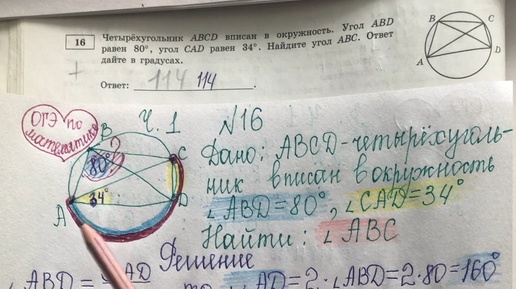 16
Четырёхугольник ABCD вписан в окружность. Угол ABD
равен 80°, угол CAD равен 34°. Найдите угол ABC. Ответ
дайте в градусах.
Ответ: 114 114
B
C
A
D
ОГЭ по
математике
Ч. 1
№16
B
80°
?
C
34°
A
D
Дано: ABCD-четырёхуголь-
ник вписан в окружность
∠ABD=80°, ∠CAD=34°
Найти: ∠ABC
Решение
∠ABD = AD = 2·∠ABD=2·80=160°